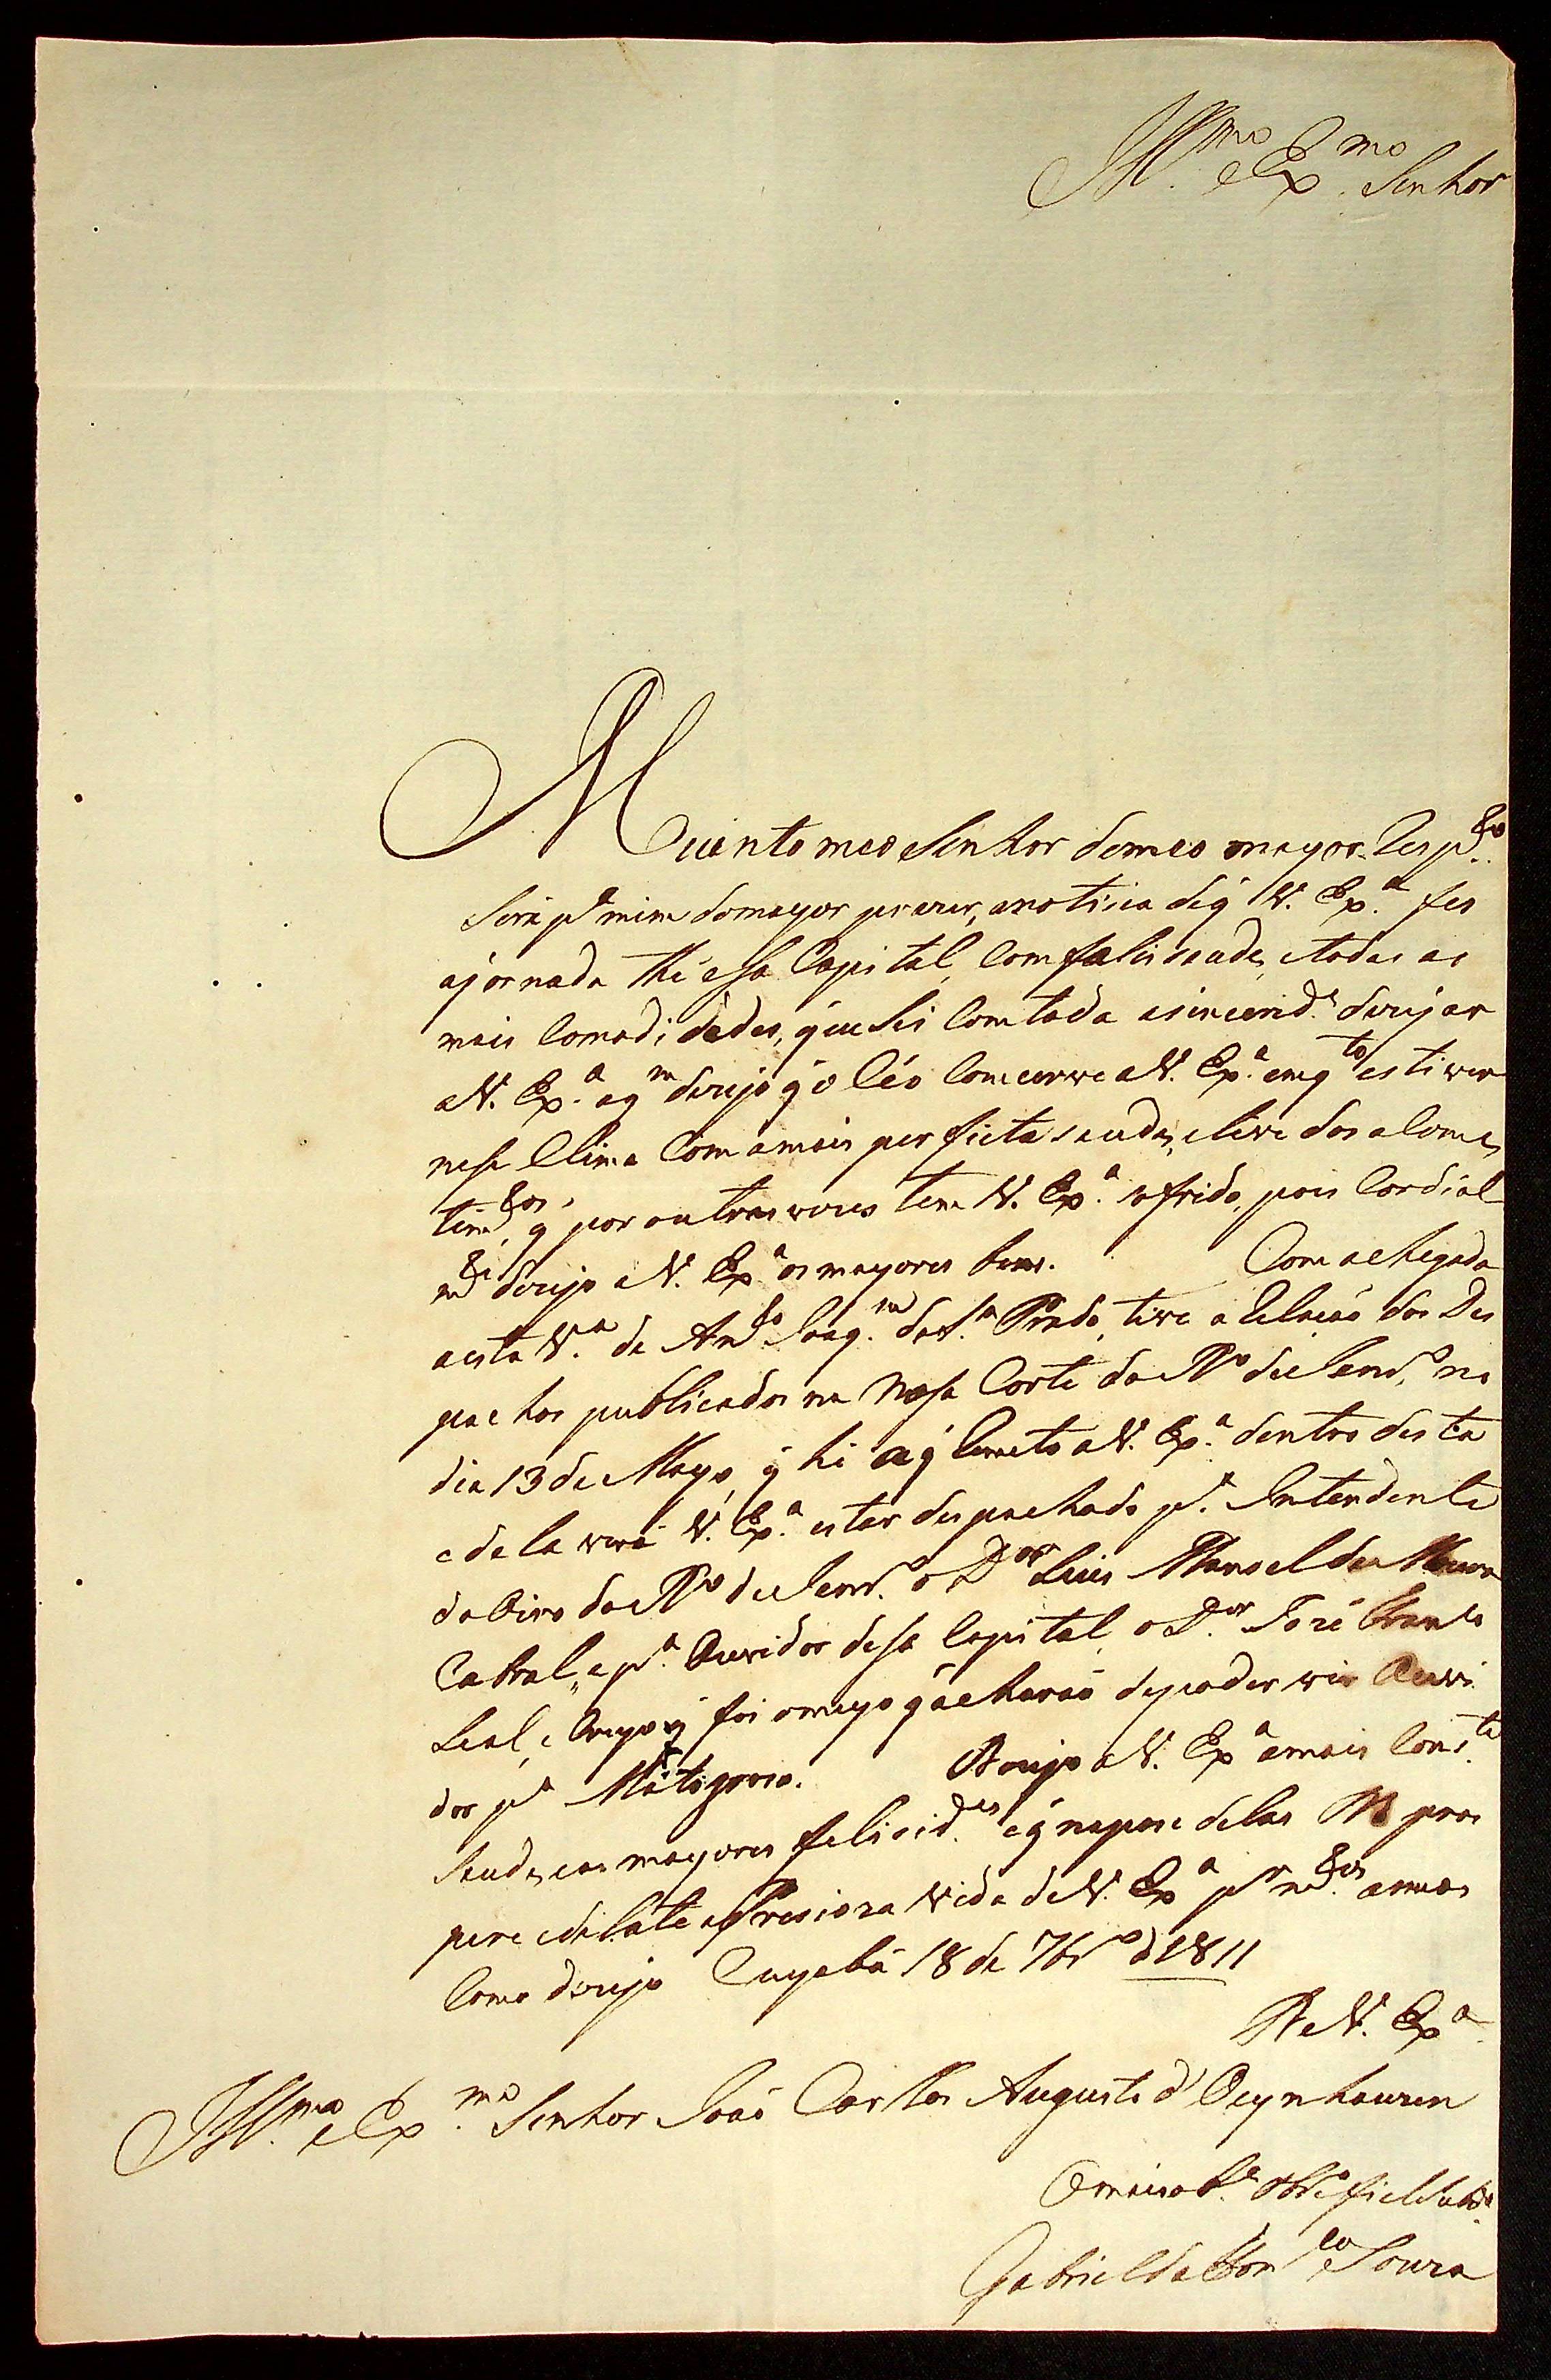 Ill.mo e Ex.mo Senhor
Muinto meo Senhor de meo mayor Resp.to
Será p.a mim do mayor prazer, a noticia de q̃ V. Ex.a fes
a jornada the essa Capital, Com felis saude, e todas as
mais Comodidades, que Sei Com toda a sincerid.e dezejar
a V. Ex.a a q.m dezejo q̃ o Céo Comcerve a V. Ex.a emq.to estiver
nese Clima Com a mais perfieta saude, e livre dos
tim.tos, q̃ por outras vezes tem V. Ex.a sofrido, pois Cordial
m.te dezejo a V. Ex.a os mayores bens. Com a chegada
a esta V.a de Ant.o Joaq.m da S.a Prado, tive a Relacaõ dos Des
pachos publicados na Nosa Corte do R.o de Janr.o, no
dia 13 de Mayo, q̃ hé a q̃ Remeto a V. Ex.a dentro desta
e dela verá V. Ex.a estar despachado p.a Intendente
do Oiro do R.o de Janr.o o D.or Luis Manoel de Moura
Cabral, e p.a Ouvidor desa Capital, o D.or José
Leal, e q̃ foi o meyo q̃ acharaõ de poder vir Ouvi
dor p.a Matogroso. Dezejo a V. Ex.a a mais Cons.te
saude, e as mayores felicid.es e q̃ na pose delas pros
pere e dilate a Presioza Vida de V. Ex.a p.r m.tos annos
Como dezejo Cuyabá 18 de 7br.o d 1811
De V. Ex.a
Ill.mo e Ex.mo Senhor Joaõ Carlos Augusto d'Oeynhausen
O mais ob.e obr.o fiel Subd.o
Gabriel da Fon.ca e Souza